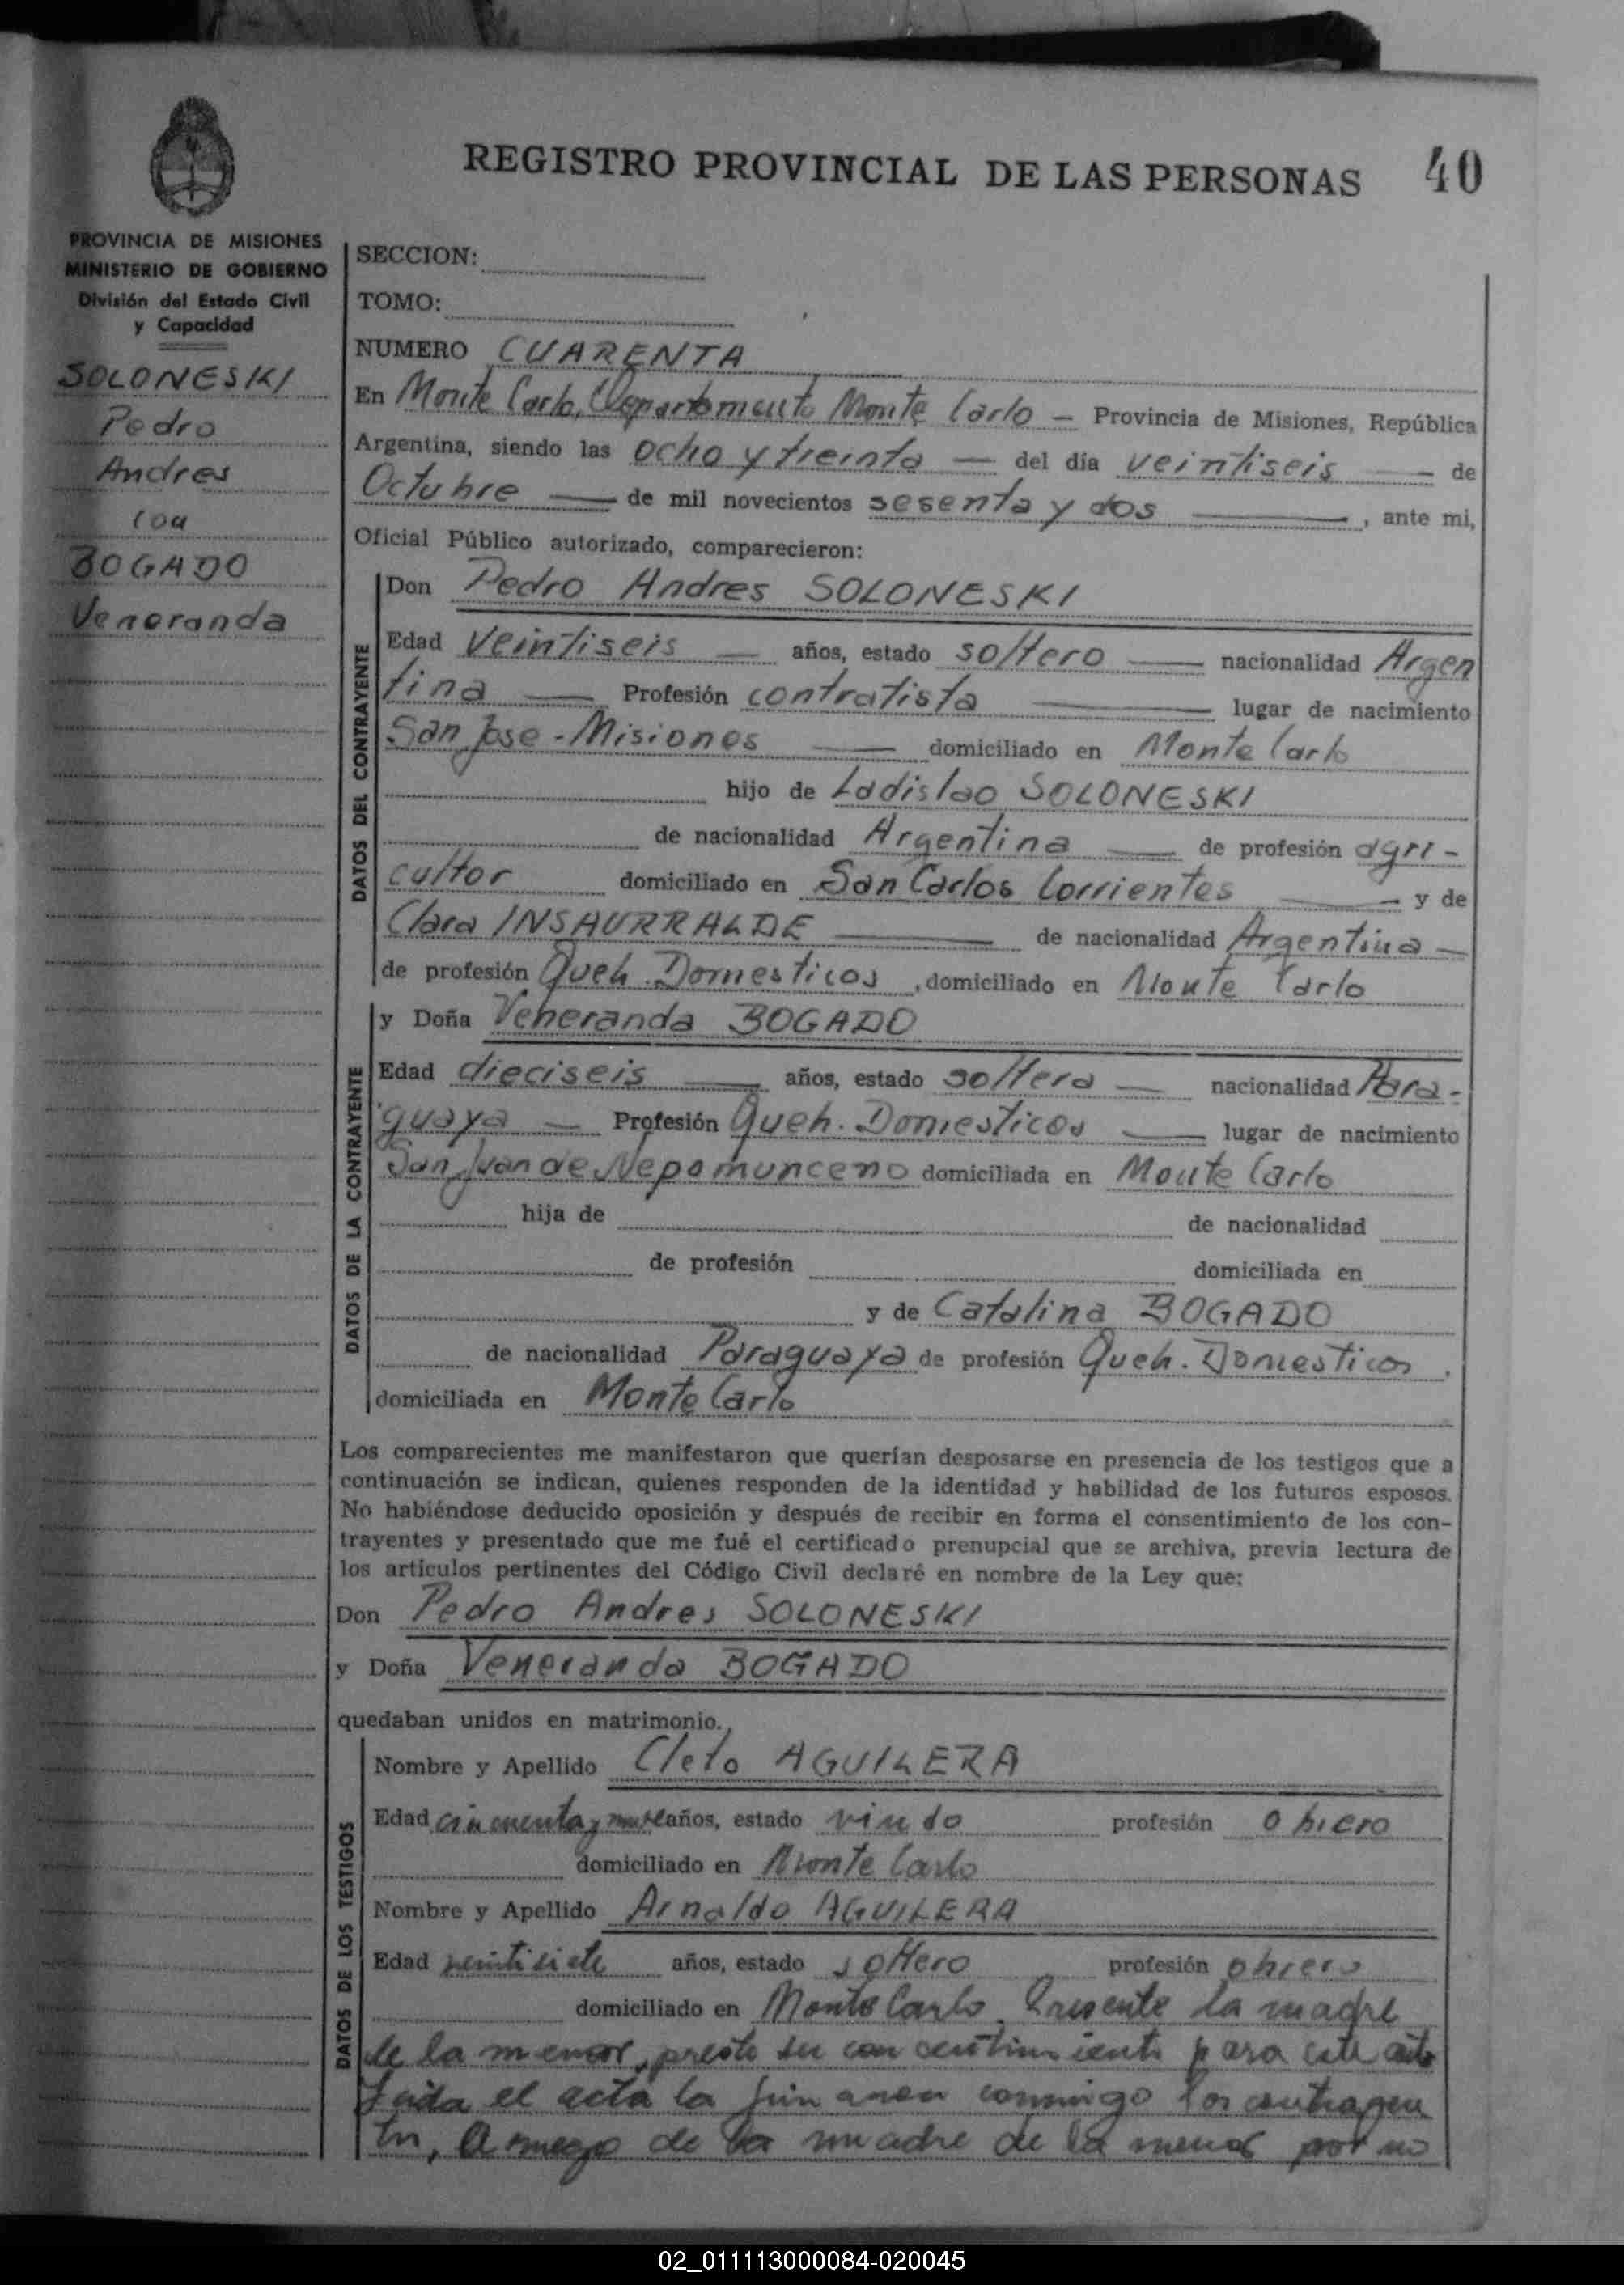 REGISTRO PROVINCIAL DE LAS PERSONAS 40
PROVINCIA DE MISIONES
MINISTERIO DE GOBIERNO
División del Estado Civil
y Capacidad
SOLONESKI
Pedro
Andres
con
BOGADO
Veneranda
SECCION:
TOMO:
NUMERO CUARENTA
En Monte Carlo, Departamento Monte Carlo — Provincia de Misiones, República
Argentina, siendo las ocho y treinta — del día veintiseis — de
Octubre — de mil novecientos sesenta y dos —, ante mi,
Oficial Público autorizado, comparecieron:
DATOS DEL CONTRAYENTE
Don Pedro Andres SOLONESKI
Edad Veintiseis — años, estado soltero — nacionalidad Argen
tina — Profesión contratista — lugar de nacimiento
San Jose - Misiones — domiciliado en Monte Carlo
hijo de Ladislao SOLONESKI
de nacionalidad Argentina — de profesión agri-
cultor domiciliado en San Carlos Corrientes — y de
Clara INSAURRALDE — de nacionalidad Argentina —
de profesión Queh. Domesticos, domiciliado en Monte Carlo
DATOS DE LA CONTRAYENTE
y Doña Veneranda BOGADO
Edad dieciseis — años, estado soltera — nacionalidad Para-
guaya — Profesión Queh. Domesticos — lugar de nacimiento
San Juan de Nepomunceno domiciliada en Monte Carlo
hija de de nacionalidad
de profesión domiciliada en
y de Catalina BOGADO
de nacionalidad Paraguaya de profesión Queh. Domesticos,
domiciliada en Monte Carlo
Los comparecientes me manifestaron que querían desposarse en presencia de los testigos que a
continuación se indican, quienes responden de la identidad y habilidad de los futuros esposos.
No habiéndose deducido oposición y después de recibir en forma el consentimiento de los con-
trayentes y presentado que me fué el certificado prenupcial que se archiva, previa lectura de
los artículos pertinentes del Código Civil declaré en nombre de la Ley que:
Don Pedro Andres SOLONESKI
y Doña Veneranda BOGADO
quedaban unidos en matrimonio.
DATOS DE LOS TESTIGOS
Nombre y Apellido Cleto AGUILERA
Edad cincuenta y nueve años, estado viudo profesión obrero
domiciliado en Monte Carlo
Nombre y Apellido Arnaldo AGUILERA
Edad veintisiete años, estado soltero profesión obrero
domiciliado en Monte Carlo. Presente la madre
de la menor, presto su concentimiento para este acto
Leida el acta la firmaron conmigo los contrayen
tes, a ruego de la madre de la menor por no
02_011113000084-020045